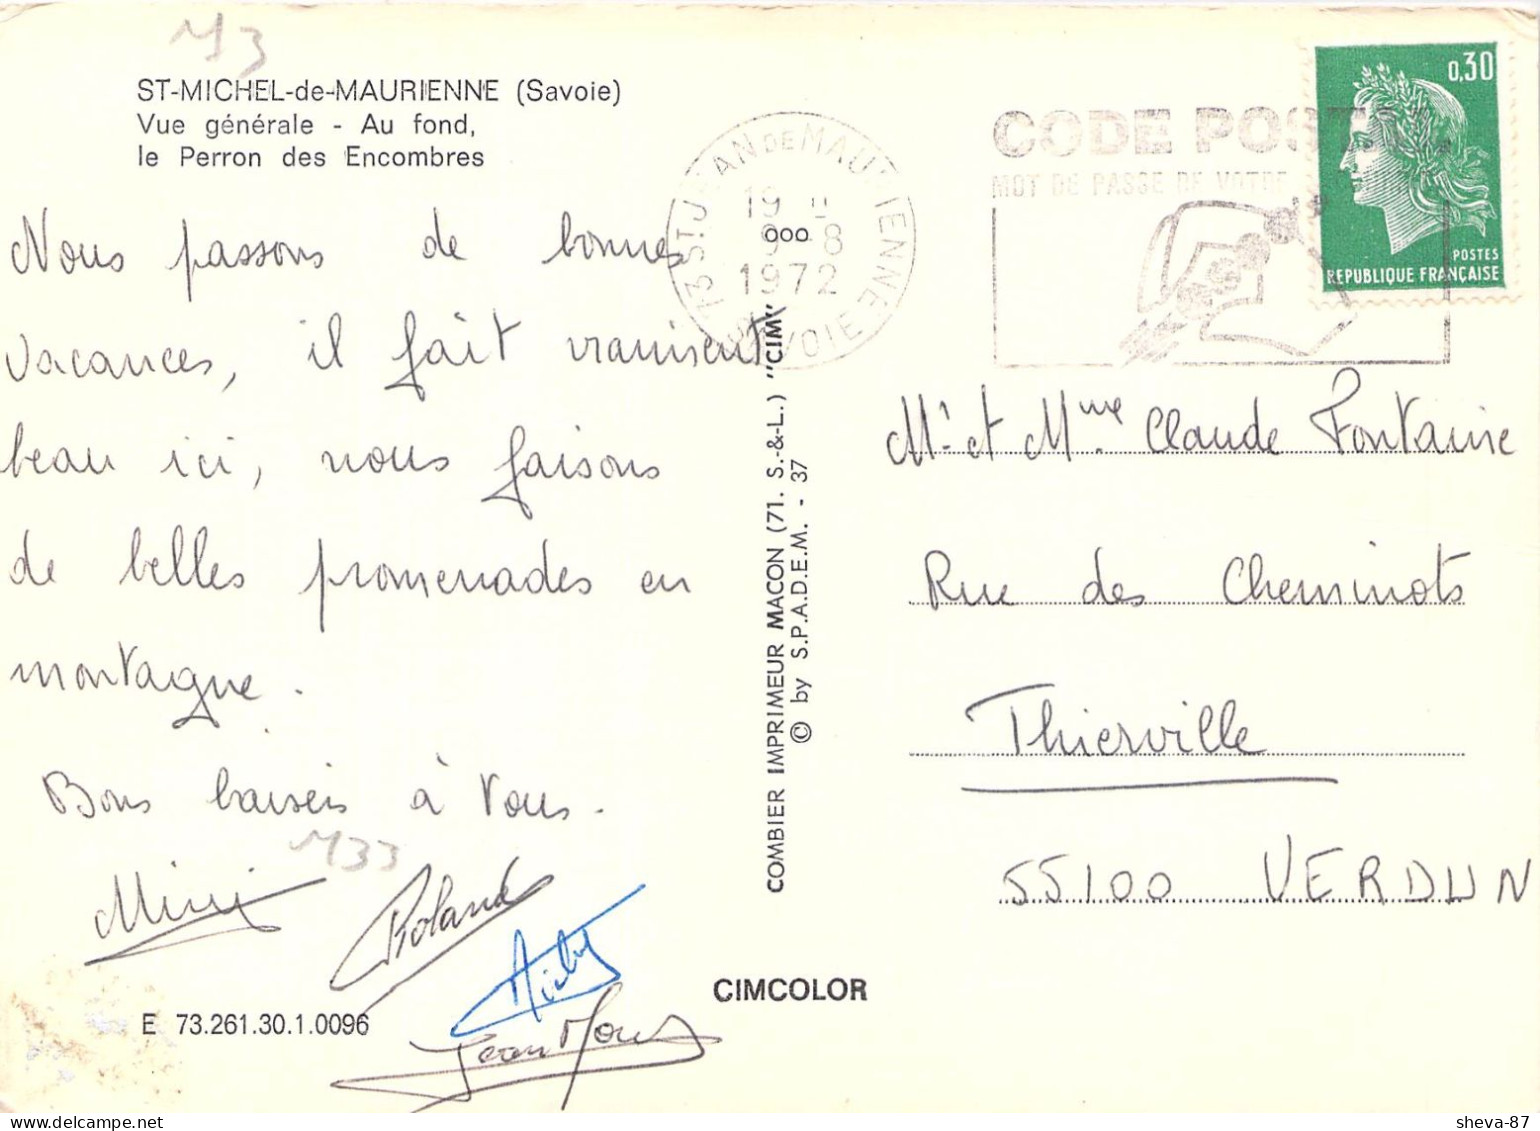 M3
ST-MICHEL-de-MAURIENNE (Savoie)
Vue générale - Au fond,
le Perron des Encombres
Nous passons de bonnes
vacances, il fait vraiment
beau ici, nous faisons
de belles promenades en
montagne.
Bons baisers à vous.
M33
Mimi
Roland
Jean
E 73.261.30.1.0096
COMBIER IMPRIMEUR MACON (71. S.-&-L.) "CIM"
© by S.P.A.D.E.M. - 37
CIMCOLOR
73 ST. JEAN DE MAURIENNE
19 H
8 - 8
1972
SAVOIE
CODE POSTAL
MOT DE PASSE DE VOTRE
0,30
POSTES
REPUBLIQUE FRANÇAISE
Mr et Mme Claude Fontaine
Rue des Cheminots
Thierville
55100 VERDUN
sheva-87